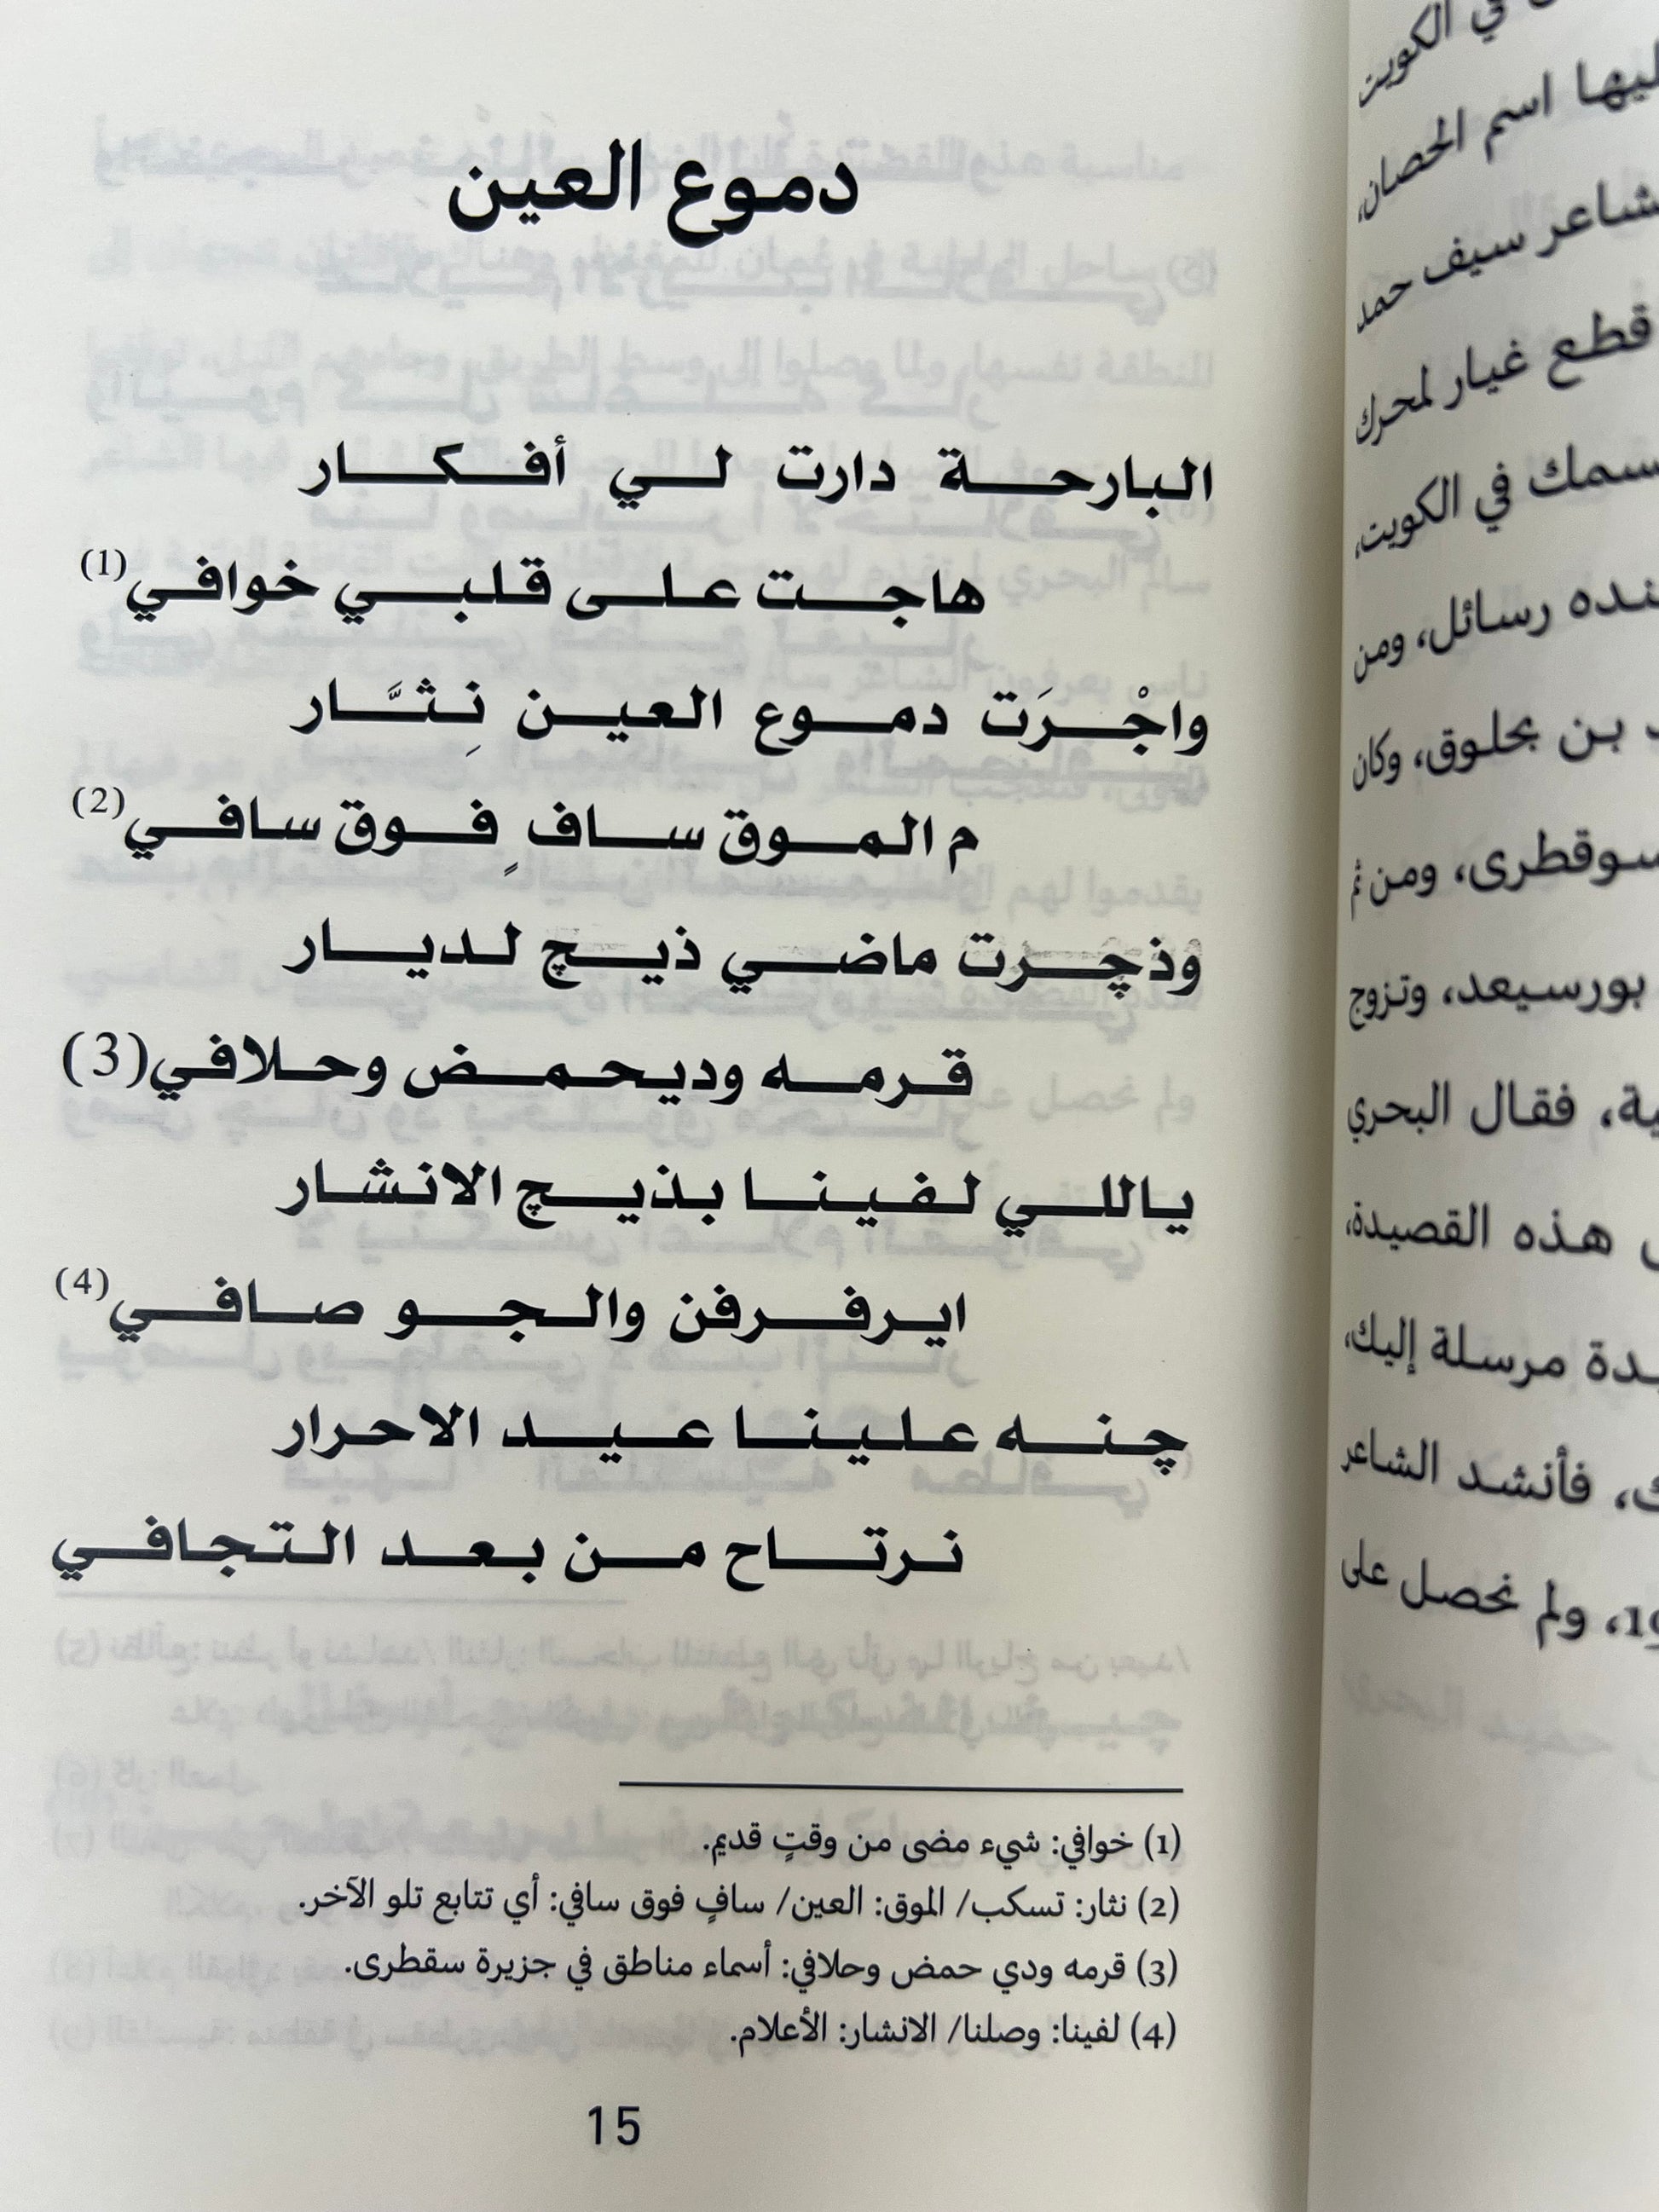 دموع العين
البارحة دارت لي أفكار
هاجت على قلبي خوافي(1)
واجْرَت دموع العين نِثَّار
م الموق سافٍ فوق سافي(2)
وذچرت ماضي ذيچ لديار
قرمه وديحمض وحلافي(3)
ياللي لفينا بذيچ الانشار
ايرفرفن والجو صافي(4)
چنه علينا عيد الاحرار
نرتاح من بعد التجافي
(1) خوافي: شيء مضى من وقتٍ قديم.
(2) نثار: تسكب/ الموق: العين/ سافٍ فوق سافي: أي تتابع تلو الآخر.
(3) قرمه ودي حمض وحلافي: أسماء مناطق في جزيرة سقطرى.
(4) لفينا: وصلنا/ الانشار: الأعلام.
15
في الكويت
اسم الحصان،
شاعر سيف حمد
قطع غيار لمحرك
في الكويت،
رسائل، ومن
بن بحلوق، وكان
سوقطرى، ومن ثم
بورسيعد، وتزوج
فقال البحري
هذه القصيدة،
مرسلة إليك،
فأنشد الشاعر
ولم نحصل على